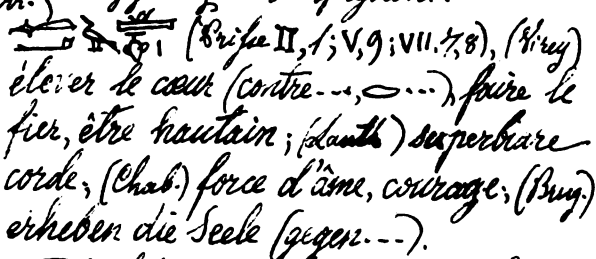 (Prisse II, 1; V, 9; VII. 7, 8), (Virey)
élever le cœur (contre ..., ...), faire le
fier, être hautain; (Lauth) superbiare
corde; (Chab.) force d'âme, courage; (Brug.)
erheben die Seele (gegen ...).